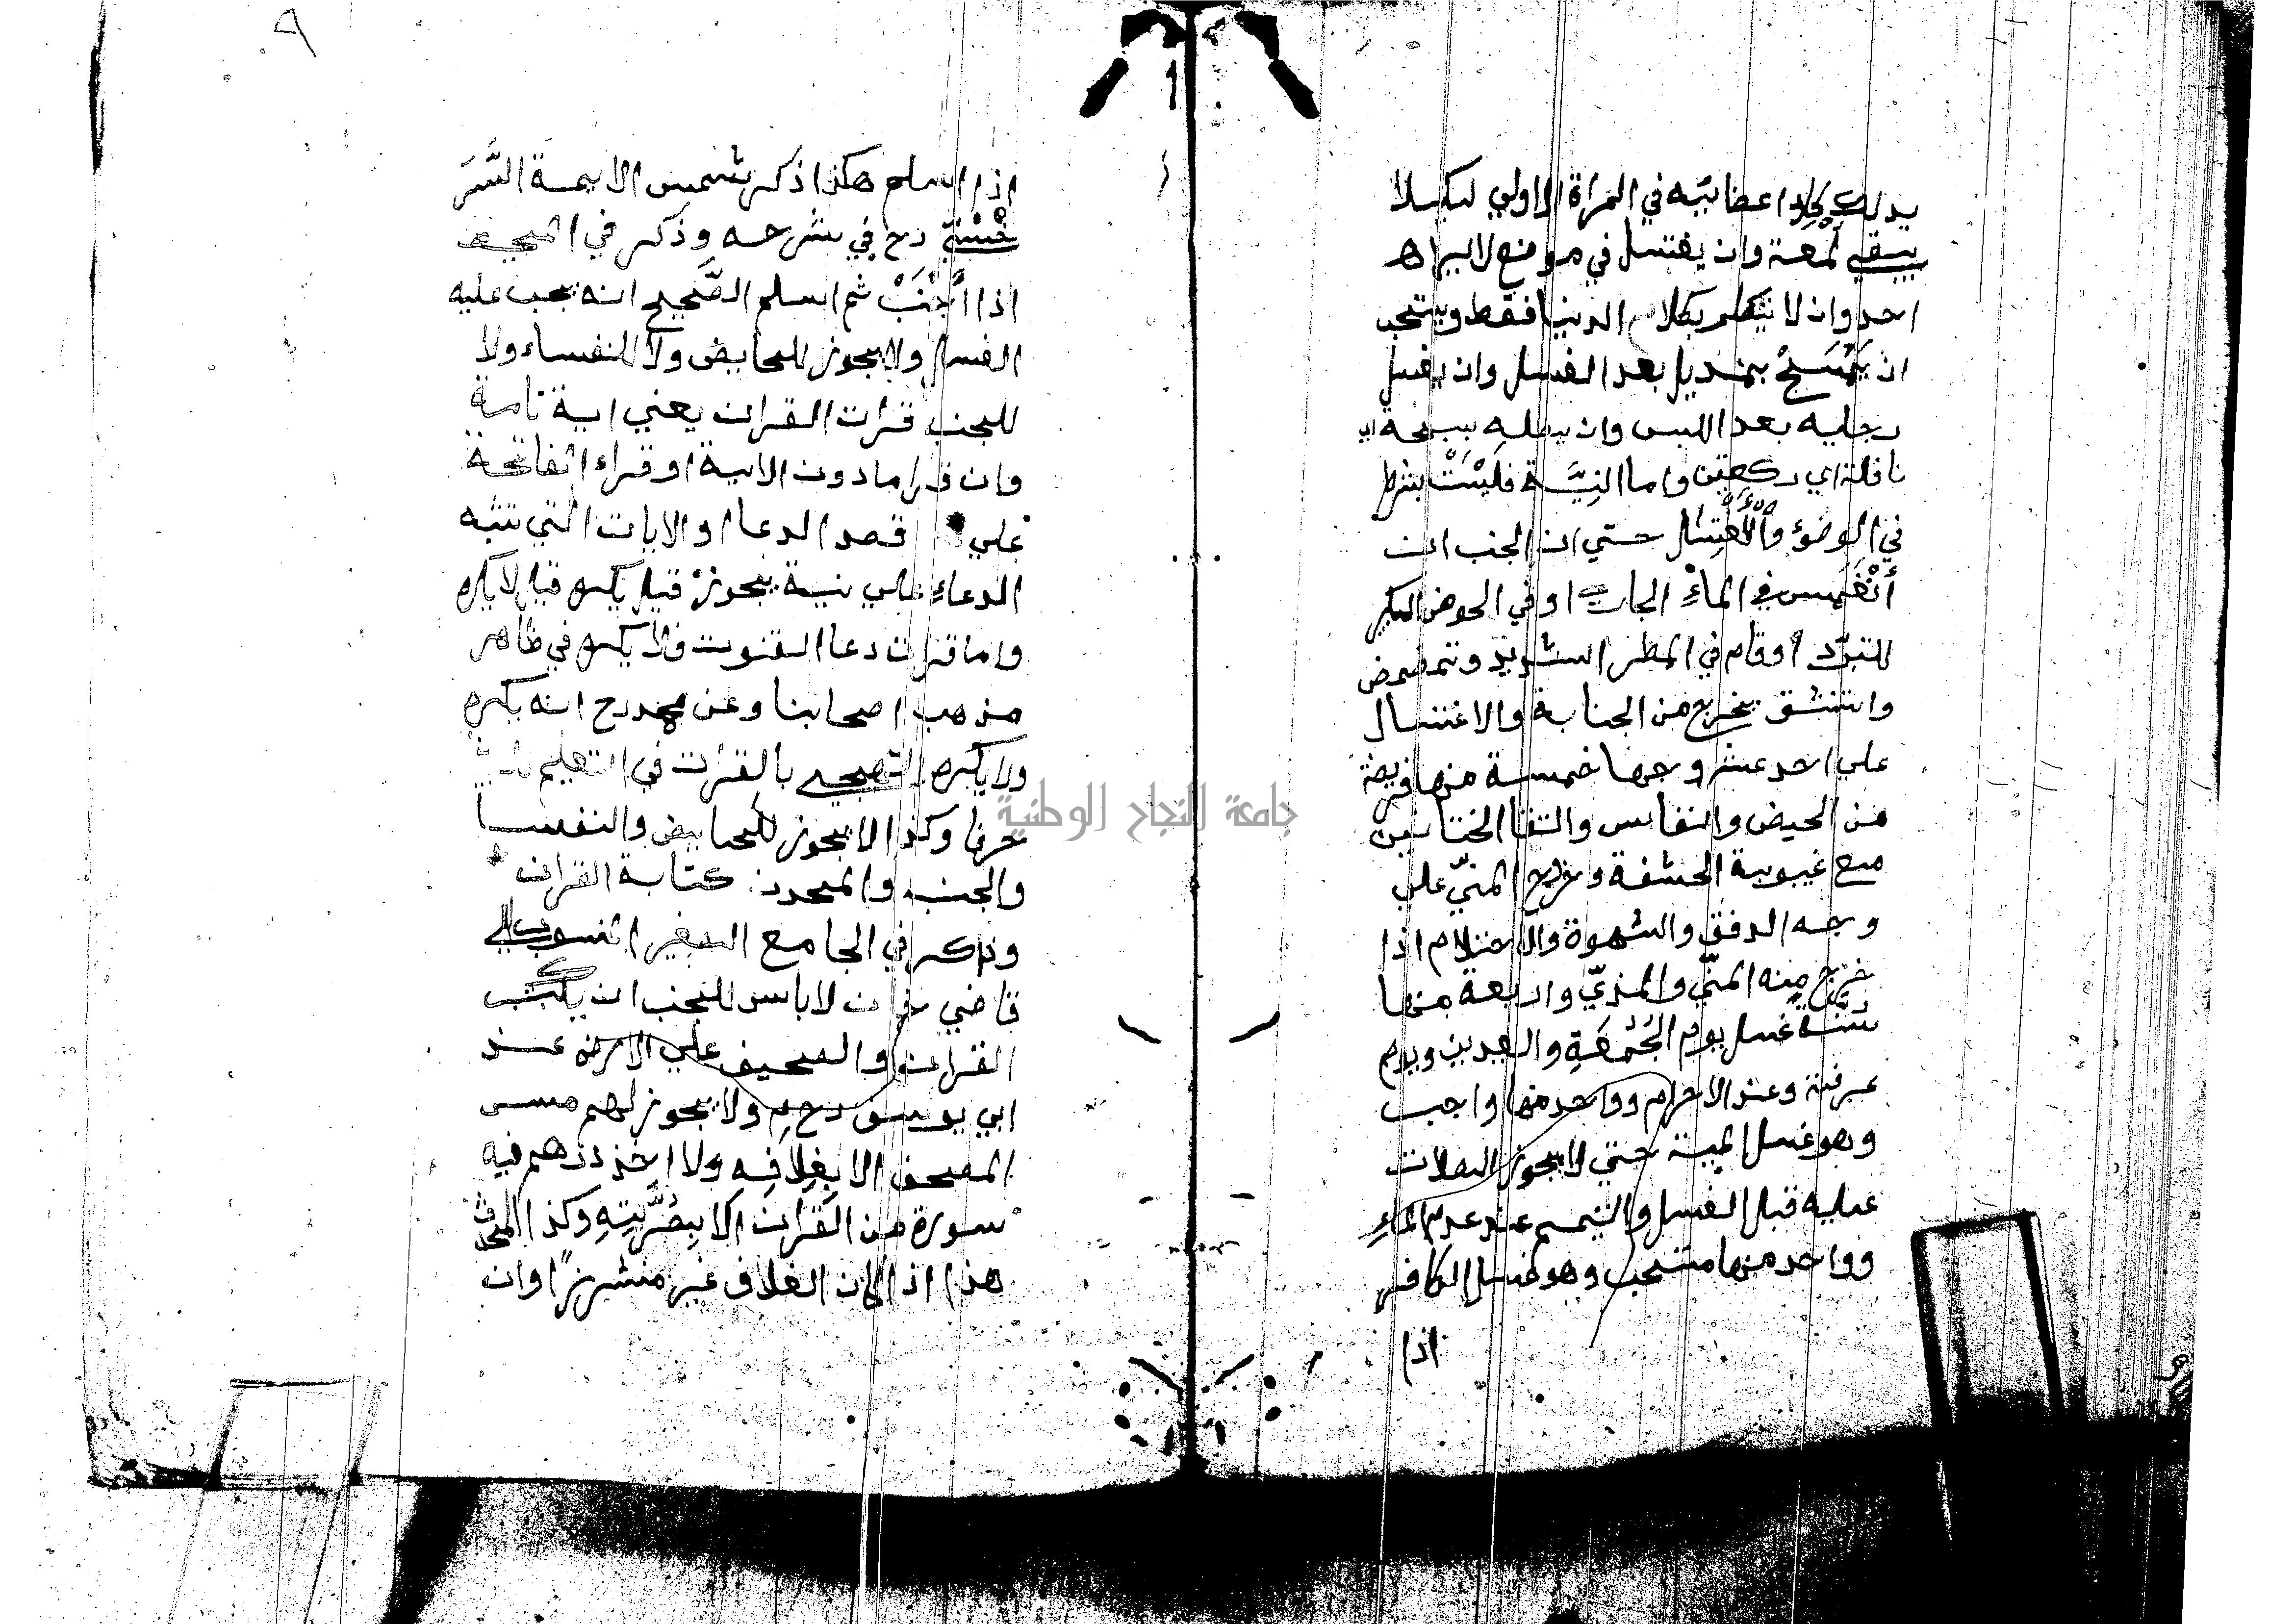 يدلك كل اعضايه في المراة الاولي لكيلا
يبقي لمعة وان يغتسل في موضع لا يراه
احد وان لا يتكلم بكلام الدنيا فقط ويستحب
ان يمسح بمنديل بعد الغسل وان يغسل
رجليه بعد اللبس وان يصليه سبحة اي
نافلة اي ركعتين واما النِيَّة فَلَيْسَتْ بشرط
في الوضؤ والاغتسال حتي ان الجنب ان
أنغمس في الماءِ الجاري او في الحوض الكبير
للتبرّد أو قام في المطر الشديد وتمضمض
واستنشق يخرج من الجنابة والاغتسال
علي احد عشر وجها خمسة منها فريضة
من الحيض والنفاس والتقا الختانين
مع غيبوبة الحشفة وخروج المنيّ علي
وجه الدفق والشهوة والاحتلام اذا
خرج منه المنّي والمذيّ واربعة منها
سُنّة غسل يوم الجُمْعَةِ والعيدين ويوم
عرفة وعند الاحرام وواحد منها واجب
وهو غسل الميتة حتي لا يجوز الصلات
عليه قبل الغسل والتيمم عند عدم الماءِ
وواحد منها مستحب وهو غسل الكافر
اذا
٩
اذا اسلم هكذا ذكر شمس الايمة السَّرَ
خْسْيّ رح في شرحه وذكر في المحيط
اذا أَجْنَبْ ثم اسلم الصَّحيح انه يجب عليه
الغسل ولا يجوز للحايض ولا للنفساء ولا
للجنب قرات القران يعني اية تامة
وان قرا ما دون الاية او قراء الفاتحة
علي قصد الدعا او الايات التي تشبه
الدعاء علي نية يجوز قيل يكره قيل لا يكره
واما قرات دعا القنوت فلا يكره في ظاهر
مذهب اصحابنا وعن محمد رح انه يكره
ولا يكره التهجي بالقرات في التعليم
حرفا وكذا لا يجوز للحايض والنفسا
والجنب والمحدث كتابة القران
وذكر في الجامع الصغير المنسوب الي
قاضي خان لا باس للجنب ان يكتب
القران والصحيف علي الارض عند
ابي يوسف رح ولا يجوز لهم مس
المصحف الا بغلافِه ولا اخذ درهم فيه
سورة من القُرانِ الا بِصُرَّتِهِ وكذا المحدث
هذا اذا كان الغلاف غير منشرز وان
جامعة النجاح الوطنية